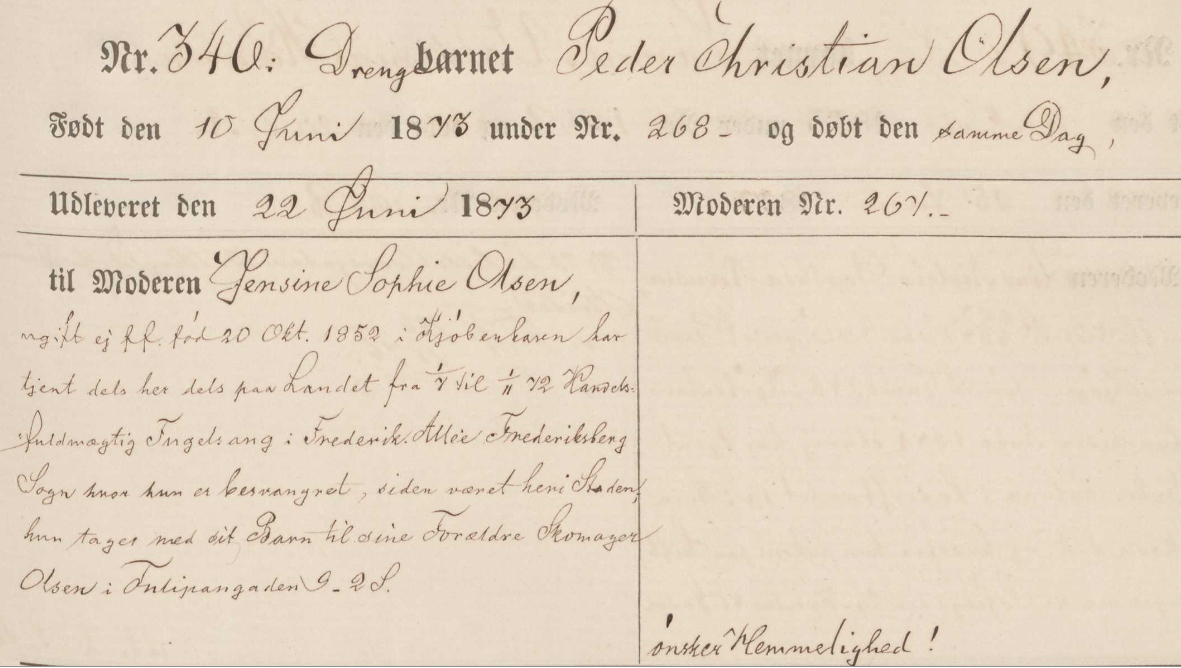 Nr. 346: Drengebarnet Peder Christian Olsen,
Født den 10 Juni 1873 under Nr. 268- og døbt den samme Dag,
Udleveret den 22 Juni 1873
Moderen Nr. 267.-
til Moderen Jensine Sophie Olsen,
ugift ej ff. fød 20 Okt. 1852 i Kjøbenhavn har
tjent dels her dels paa Landet fra 1/7 til 1/11 72 Handels-
fuldmægtig Fugelsang i Frederik. Allée Frederiksberg
Sogn hvor hun er besvangret, siden været heri Staden,
hun tager med sit Barn til sine Forældre Skomager
Olsen i Tulipangaden 9-2 S.
ønsker Hemmelighed!